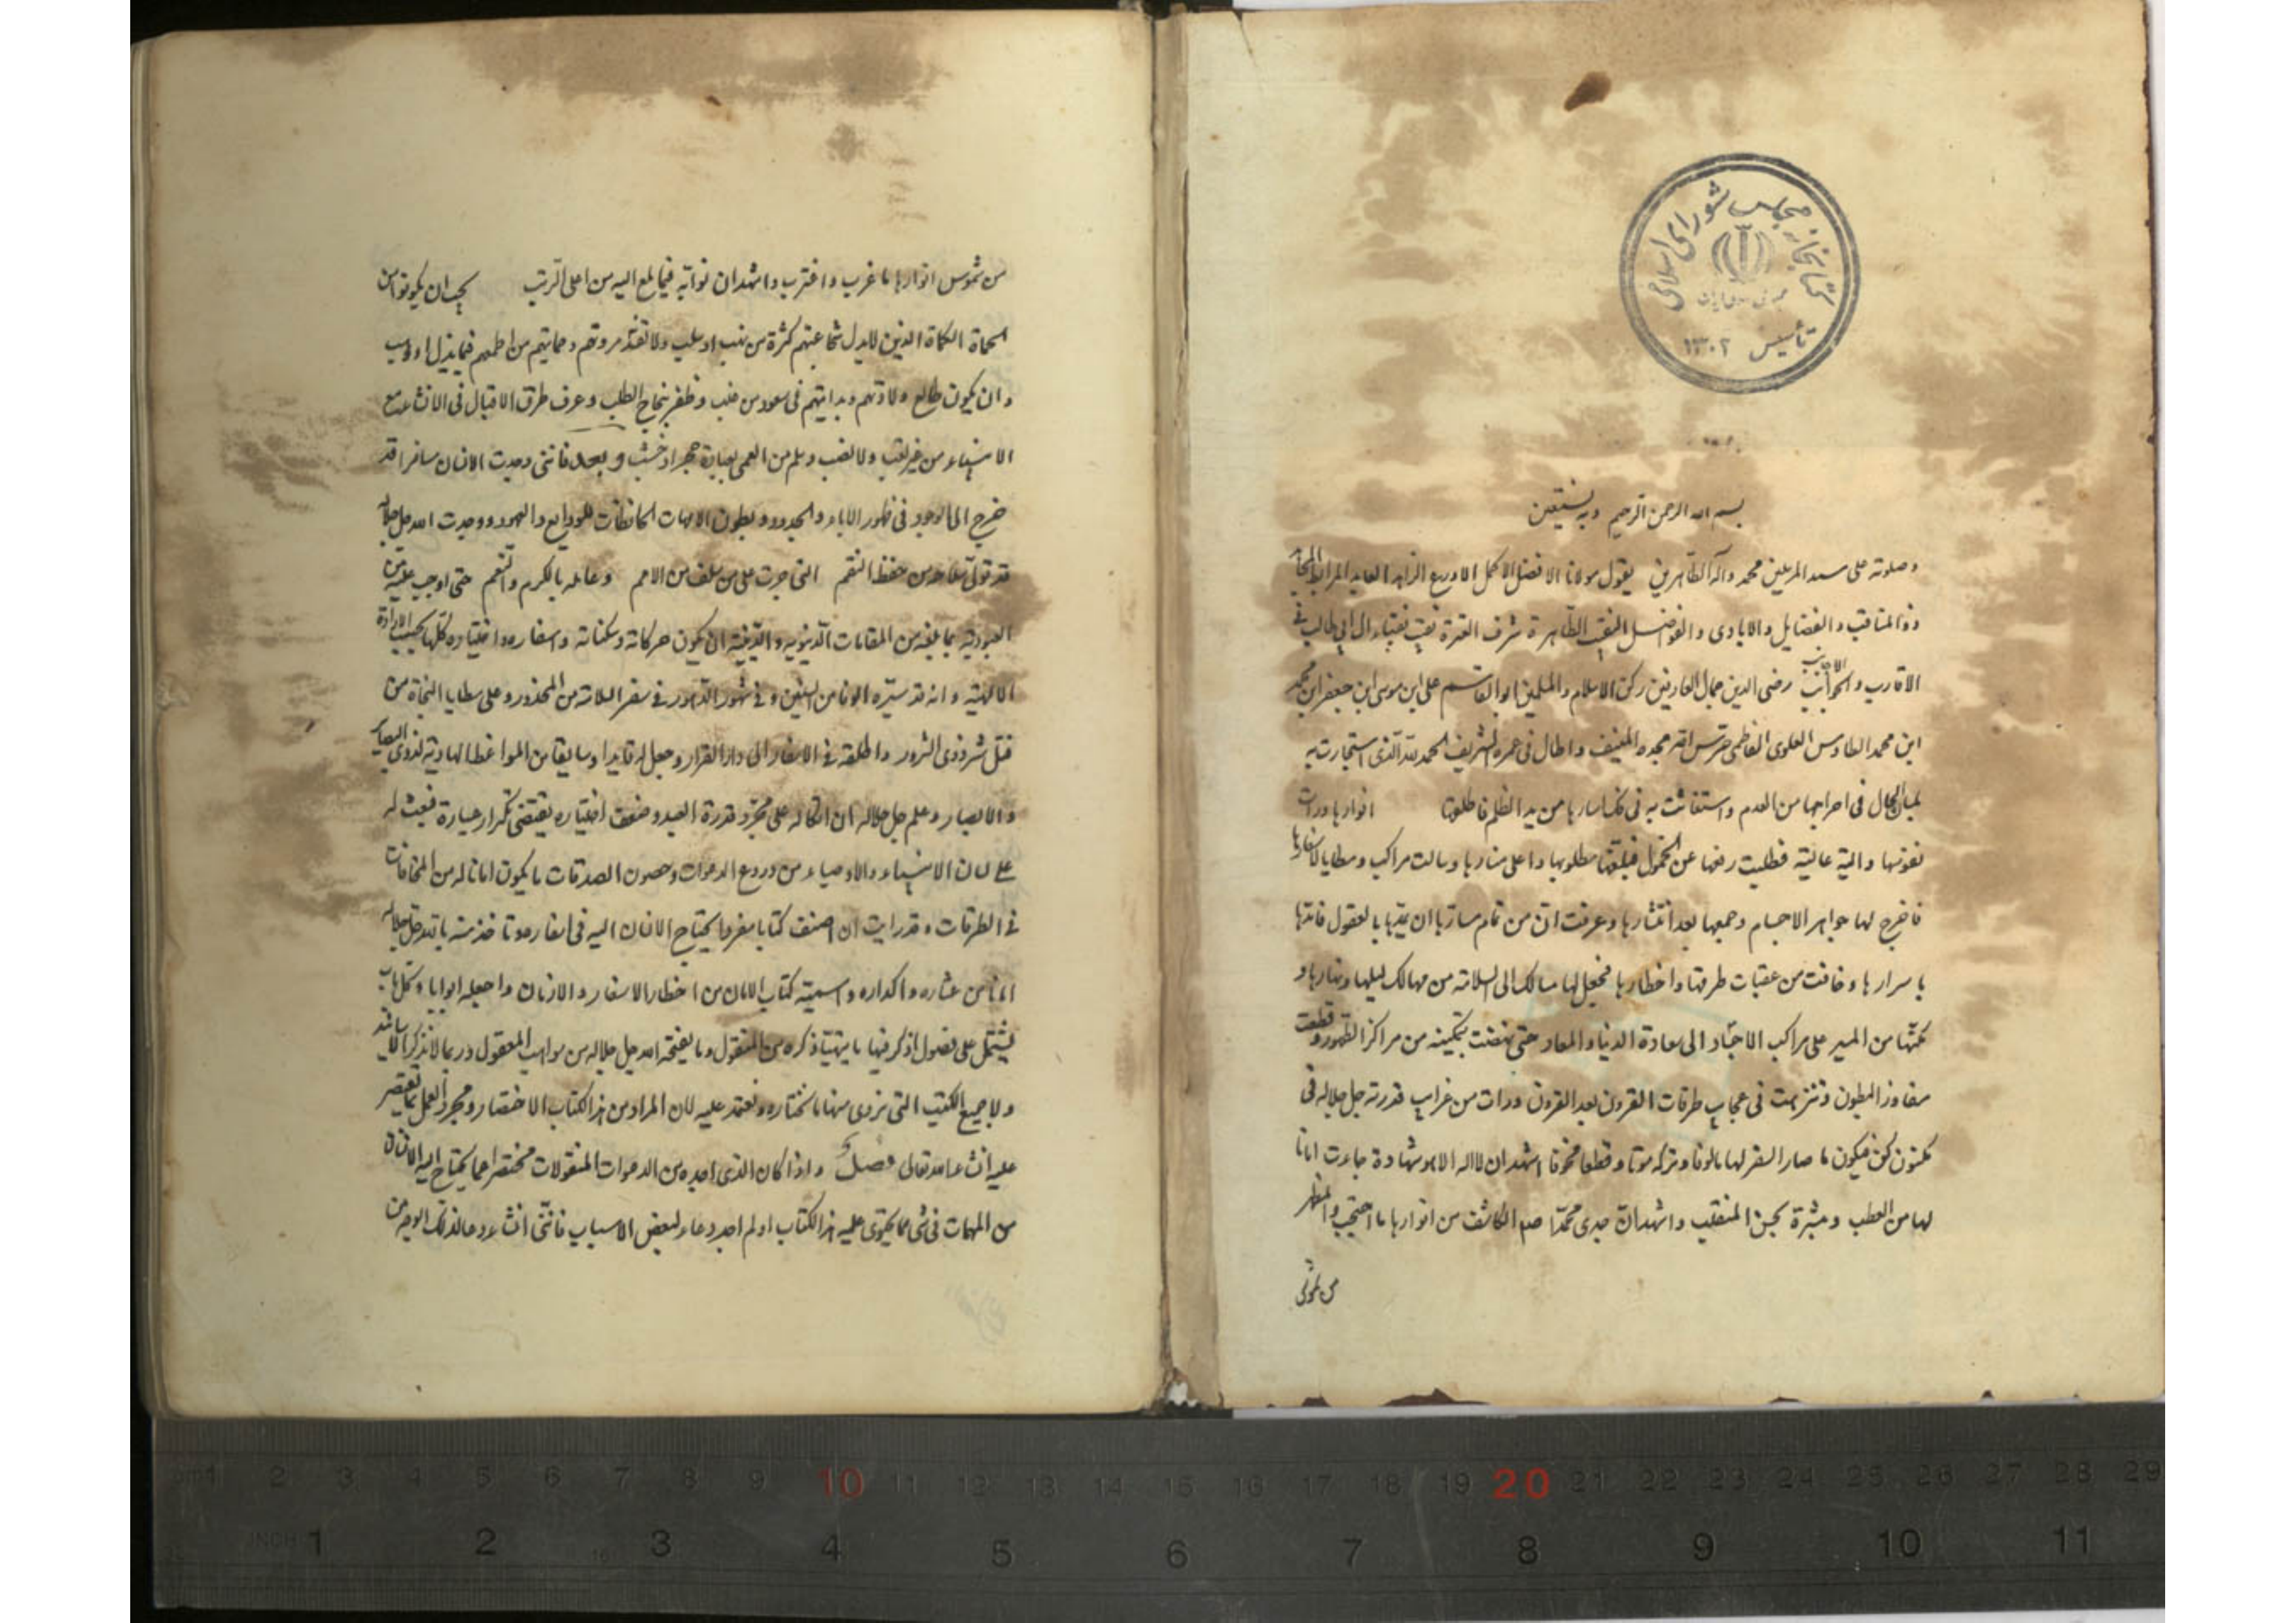 کتابخانه مجلس شورای اسلامی
تأسیس ۱۳۰۲
بسم الله الرحمن الرحيم وبه نستعين
وصلوته على سيد المرسلين محمد وآله الطاهرين يقول مولانا الافضل الاكمل الاورع الزاهد العابد المرابط المجاهد
ذو المناقب والفضايل والايادى والفواضل النقيب الطاهر شرف العترة نقيب نقباء ال ابي طالب في
الاقارب والاجانب رضى الدين جمال العارفين ركن الاسلام والمسلمين ابو القاسم على ابن موسى ابن جعفر ابن محمد
ابن محمد الطاوس العلوى الفاطمى حرس الله مجده المنيف واطال فى عمره الشريف الحمد لله الذى استجارت به
بلسان الحال فى اخراجها من العدم واستغاثت به فى فك اسارها من يد الظلم فاطلعها انوارها ورات
نفوسها دانية عالية فطلبت رفعها عن الخمول فبلغها مطلوبها واعلى منارها وسالت مراكب ومطايا لاسفارها
فاخرج لها جواهر الاجسام وجمعها بعد انتشارها وعرفت ان من تمام مسارها ان يمدها بالعقول فامدها
باسرارها وخافت من عقبات طرقها واخطارها فجعل لها مسالك الى السلامة من مهالك ليلها ونهارها و
مكنها من المسير على مراكب الاجساد الى سعادة الدنيا والمعاد حتى نهضت بتمكينه من مراكز الظهور وقطعت
مفاوز البطون وتنزهت فى عجايب طرقات القرون بعد القرون ورات من غرايب قدرته جل جلاله فى
مكنون كن فيكون ما صار السفر لها مالوفا وتركه موتا وقطعا مخوفا اشهد ان لا اله الا هو شهادة جاءت امانا
لها من العطب ومبشرة بحسن المنقلب واشهد ان جدى محمدا صم الكاشف من انوارها ما احتجب والمظهر
من شموس
من شموس انوارها ما غرب واقترب واشهد ان نوابه فيما بلغ اليه من اعلى الرتب يجب ان يكونوا من
الحماة الكماة الذين لا يذل شجاعتهم كثرة من نهب او سلب ولا تفقد مروتهم وحمايتهم من اطمعهم فيما بذل او وهب
وان يكون طالع ولادتهم وبدايتهم فى سعود من غلب وظفر بنجاح الطلب وعرف طرق الاقبال فى الانشاء مع
الانبياء من غير تعب ولا نصب وسلم من العمى بعبادة حجر او خشب وبعد فاننى وجدت الانسان مسافرا قد
خرج الى الوجود فى ظهور الاباء والجدود وبطون الامهات الحافظات للودايع والعهود ووجدت الله جل جلاله
قد تولى سلامته من حفظ النقم التى جرت على من سلف من الامم وعامله بالكرم والنعم حتى اوجب عليه من
العبودية بما بلغه من المقامات الدنيوية والدينية ان يكون حركاته وسكناته واسفاره واختياره كلها بحسب الارادة
الالهية وانه قد سيره الوفا من السنين وفى شهور الدهور فى سفر السلامة من المحذور وعلى مطايا النجاة من
قتل شر ذوى الشرور واطلقه فى الاسفار الى دار القرار وجعل له قايدا وسايقا من المواعظ الهادية لذوى البصاير
والابصار وعلم جل جلاله ان اتكاله على مجرد قدرة العبد وضعف اختياره يقتضى تكرار عثاره فبعث له
على لسان الانبياء والاوصياء من دروع الدعوات وحصون الصدقات ما يكون امانا له من المخافات
فى الطرقات وقد رايت ان اصنف كتابا مفردا يحتاج الانسان اليه فى اسفاره وتاخذ منه بالله جل جلاله
امانا من عثاره واكداره واسميته كتاب الامان من اخطار الاسفار والازمان واجعله ابوابا وكل باب
يشتمل على فصول اذكر فيها ما يتهيا ذكره من المنقول وما يفتحه الله جل جلاله من مواهب المعقول وربما لا نذكر الاسانيد
ولا جميع الكتب التى نروى منها ما نختاره ونعتمد عليه لان المراد من هذا الكتاب الاختصار ومجرد العمل بما نقتصر
عليه انشاء الله تعالى فصل واذا كان الذى اجده من الدعوات المنقولات مختصرا عما يحتاج اليه الانسان
من المهمات فى شى مما يحتوى عليه هذا الكتاب او لم اجد دعاء لبعض الاسباب فاننى انشاء دعا لذلك الوجه من